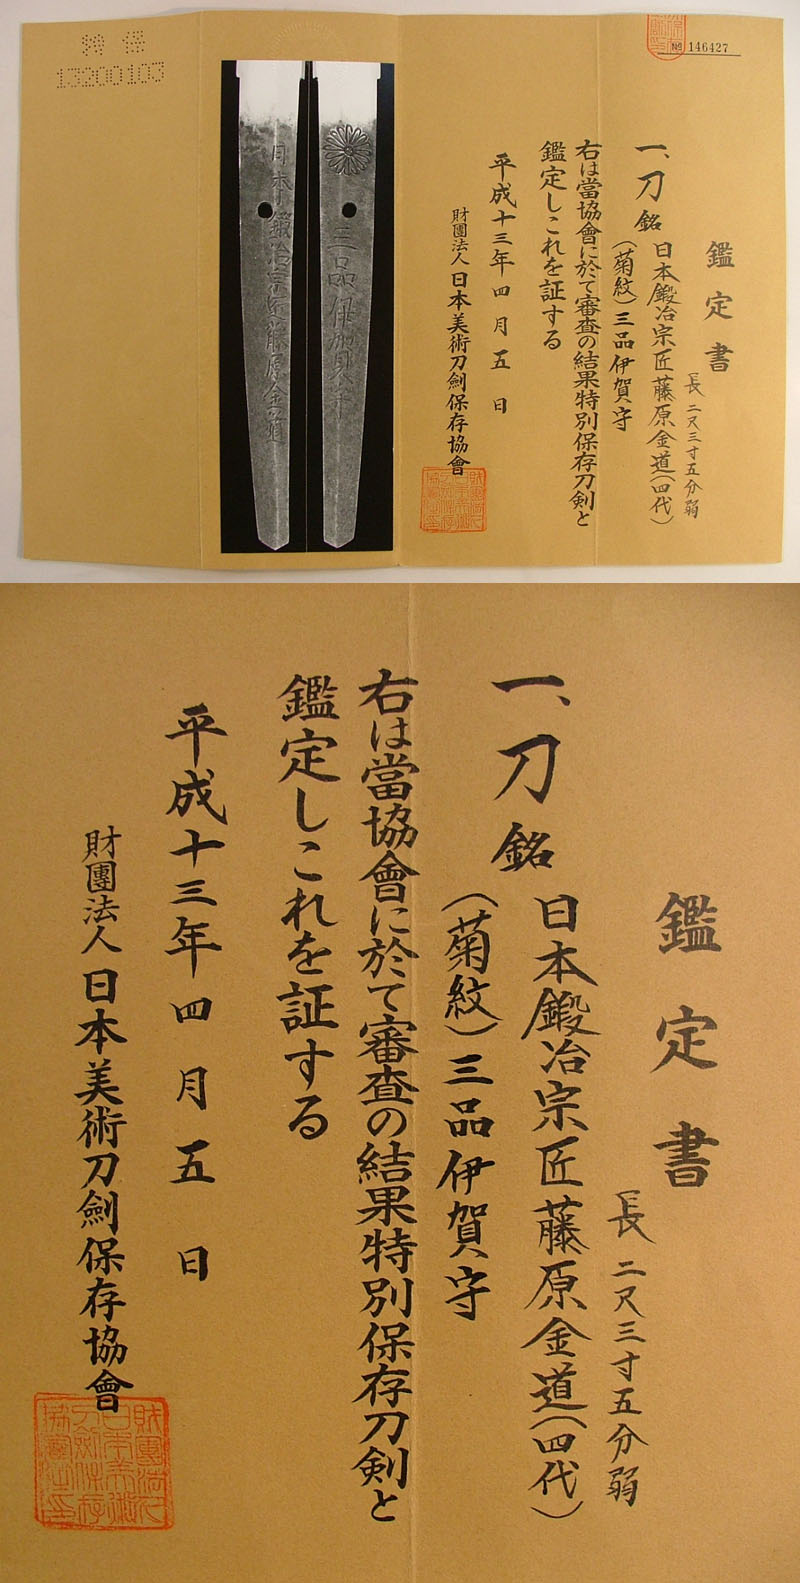 特保
13200103
№ 146427
鑑定書
長 二尺三寸五分弱
一、刀 銘 日本鍛冶宗匠藤原金道(四代)
(菊紋)三品伊賀守
右は當協會に於て審査の結果特別保存刀剣と
鑑定しこれを証する
平成十三年四月五日
財團法人 日本美術刀劍保存協會
三品伊賀守
日本鍛冶宗匠藤原金道
鑑定書
長 二尺三寸五分弱
一、刀 銘 日本鍛冶宗匠藤原金道(四代)
(菊紋)三品伊賀守
右は當協會に於て審査の結果特別保存刀剣と
鑑定しこれを証する
平成十三年四月五日
財團法人 日本美術刀劍保存協會